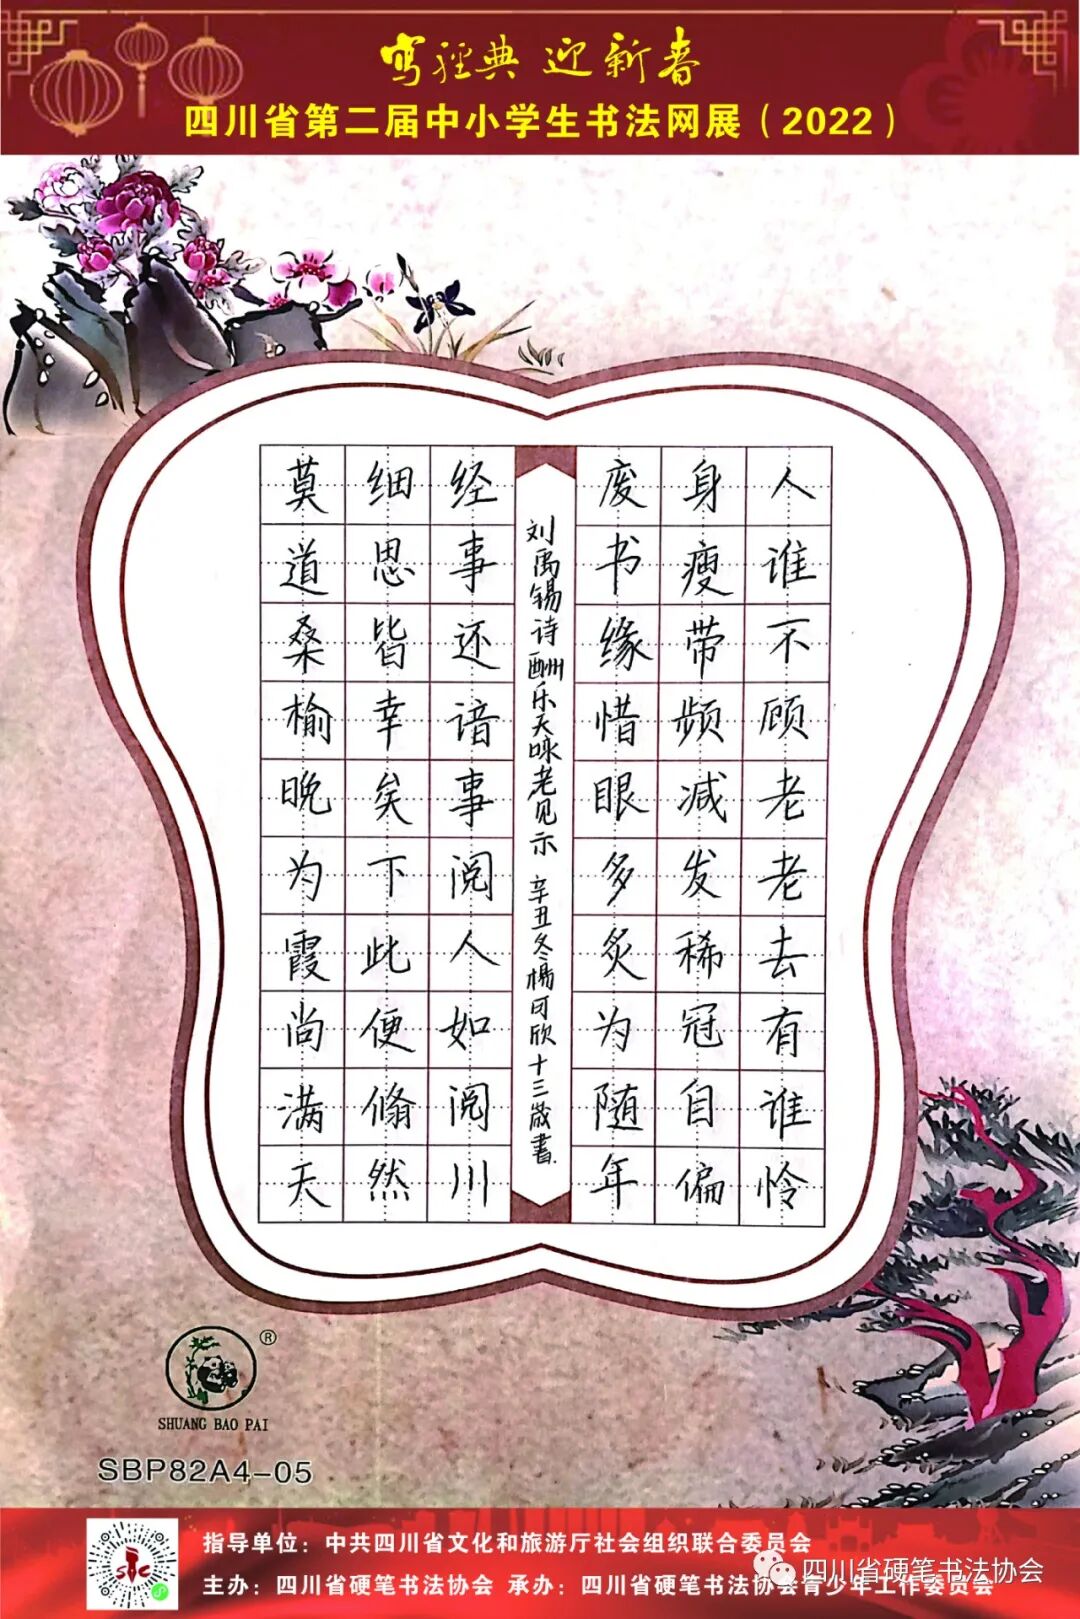 写經典 迎新春
四川省第二届中小学生书法网展（2022）
人谁不顾老老去有谁怜
身瘦带频减发稀冠自偏
废书缘惜眼多炙为随年
刘禹锡诗酬乐天咏老见示 辛丑冬杨可欣十三歲書
经事还谙事阅人如阅川
细思皆幸矣下此便翛然
莫道桑榆晚为霞尚满天
®
SHUANG BAO PAI
SBP82A4-05
指导单位：中共四川省文化和旅游厅社会组织联合委员会
主办：四川省硬笔书法协会 承办：四川省硬笔书法协会青少年工作委员会
四川省硬笔书法协会